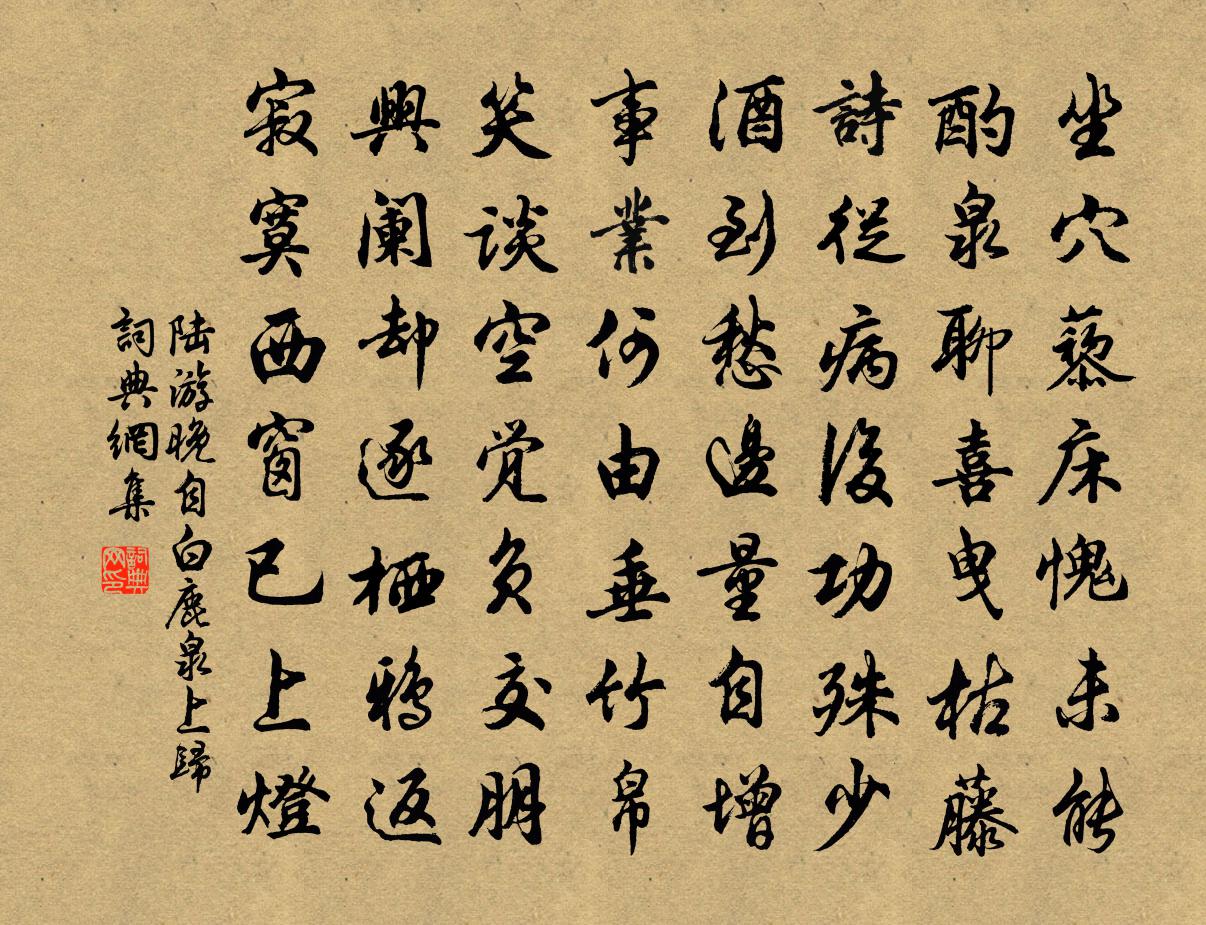 坐穴藜床愧未能
酌泉聊喜曳枯藤
詩從病後功殊少
酒到愁邊量自增
事業何由垂竹帛
笑談空覚負交朋
興阑却逐栖鴉返
寂寞西窗已上燈
陆游晚自白鹿泉上歸
詞典網集
詞典网印